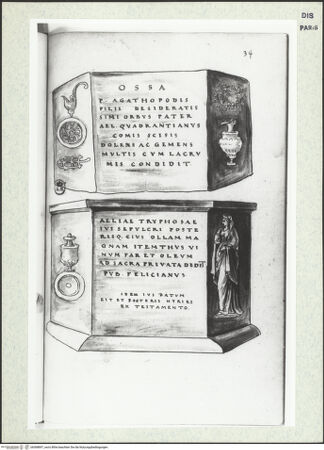 DIS
PARIS
34
OSSA
P. AGATHOPODIS
FILII DESIDERATIS
SIMI ORBVS PATER
AEL. QVADRANTIANVS
COMIS SCISIS
DOLENS AC GEMENS
MVLTIS CVM LACRV
MIS CONDIDIT
AELIAE TRYPHOSAE
IVS SEPVLCRI POSTE
RISQ EIVS OLLAM MA
GNAM ITEM THVS VI
NVM FAR ET OLEVM
AD SACRA PRIVATA
PVB. FELICIANVS
ITEM IVS DATVM
EST ET POSTERIS
EX TESTAMENTO